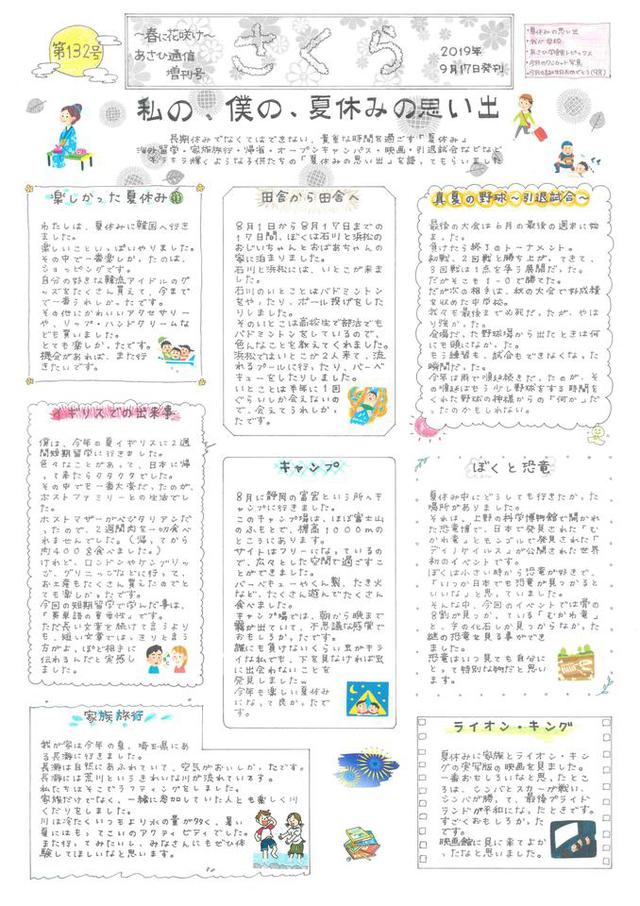 第132号
～春に花咲け～
あさひ通信
増刊号
さくら
2019年
9月17日発刊
・夏休みの思い出
私の、僕の、夏休みの思い出
長期休みでなくてはできない、貴重な時間を過ごす「夏休み」
海外留学・家族旅行・帰省・オープンキャンパス・映画・引退試合などなど
キラキラ輝くような子供たちの「夏休みの思い出」を語ってもらいました
楽しかった夏休み
わたしは、夏休みに韓国へ行き
ました。
楽しいこといっぱいやりました。
その中で一番楽しかったのは、
ショッピングです。
自分の好きな韓流アイドルのグ
ッズをたくさん買えて、今まで
で一番うれしかったです。
その他にかわいいアクセサリー
や、リップ・ハンドクリームな
ども買いました。
とても楽しかったです。
機会があれば、また行
きたいです。
田舎から田舎へ
8月1日から8月17日までの
17日間、ぼくは石川と浜松の
おじいちゃんとおばあちゃんの
家に泊まりました。
石川と浜松には、いとこが来ま
した。
石川のいとことはバドミントン
をやったり、ボール投げをした
りしました。
そのいとこは高校生で部活でも
バドミントンをしているので、
色んなことを教えてくれました。
浜松ではいとこが2人来て、流
れるプールに行ったり、バーベ
キューをしたりしました。
いとことは半年に1回
ぐらいしか会えないの
で、会えてうれしかっ
たです。
真夏の野球～引退試合～
最後の大会は6月の最後の週末に始
まった。
負けたら終了のトーナメント。
初戦、2回戦と勝ち上がってきて、
3回戦は1点を争う展開だった。
だがそこも1-0で勝てた。
だが次の相手は、秋の大会で好成績
を収めた中学校。
我々も最後まで必死だったが、やは
り強かった。
会場だった野球場から出たときは何
にも頭になかった。
もう練習も、試合もできなくなった
瞬間だった。
イギリスでの出来事
僕は、今年の夏イギリスに2週
間短期留学に行きました。
色々なことがあって、日本に帰
って来たらクタクタでした。
その中でも一番大変だったのが、
ホストファミリーとの生活でし
た。
ホストマザーがベジタリアンだ
ったので、2週間肉を一切食べ
れませんでした。(帰ってから
肉400g食べました。)
けれど、ロンドンやケンブリッ
ジ、グリニッジなどに行って、
お土産もたくさん買えたのでと
ても楽しかったです。
今回の短期留学で学んだ事は、
「英単語の重要性」です。
ただ長い文章を続いてるよりも
も、短い文章では、きりと言う
方がよっぽど相手に
伝わるんだと実感し
ました。
キャンプ
8月に静岡の富士宮という所へキャ
ンプに行きました。
このキャンプ場は、ほぼ富士山
のふもとで、標高1000mの
ところにあります。
サイトはフリーになっているの
で、広々とした空間で過ごすこ
とができました。
バーベキューやくん製、たき火
など、たくさん遊んでたくさん
食べました。
キャンプ場では、朝から晩まで
霧が出ていて、不思議な時間で
おもしろかったです。
誰にも負けないくらい虫がキラ
イな私でも、下を見なければ虫
に出会わないことを
発見しましたw
今年も楽しい夏休み
になって良かったで
す。
ぼくと恐竜
夏休み中にどうしても行きたかった
場所がありました。
それは、上野の科学博物館で開かれ
た恐竜博で、日本で発見された「む
かわ竜」とモンゴルで発見された「
デイノケイルス」が公開された世界
初のイベントです。
ぼくは小さい時から恐竜が好きで、
「いつか日本でも恐竜が見つかると
いいな」と思っていました。
そんな中、今回のイベントでは骨の
8割が見つかっている「むかわ竜」
恐竜はいつ見ても自分に
とって特別な物だと思い
ます。
家族旅行
我が家は今年の夏、埼玉県にあ
る長瀞に行きました。
長瀞は自然にあふれていて、空気がおいしかったです。
長瀞には荒川というきれいな川が流れています。
私たちはそこでラフティングをしました。
家族だけでなく、一緒に参加していた人とも楽しく川
くだりをしました。
川は冷たくいつもより水の量が多く、暑い
夏にはもってこいのアクティビティでした。
また行ってみたいし、みなさんにもぜひ体
験してほしいなと思います。
ライオン・キング
夏休みに家族とライオン・キン
グの実写版の映画を見ました。
一番おもしろいなと思ったとこ
ろは、シンバとスカーが戦い、
シンバが勝って、最後プライド
ランドが平和になったときです。
すごくおもしろかった
です。
映画館に見に来てよか
ったなと思いました。